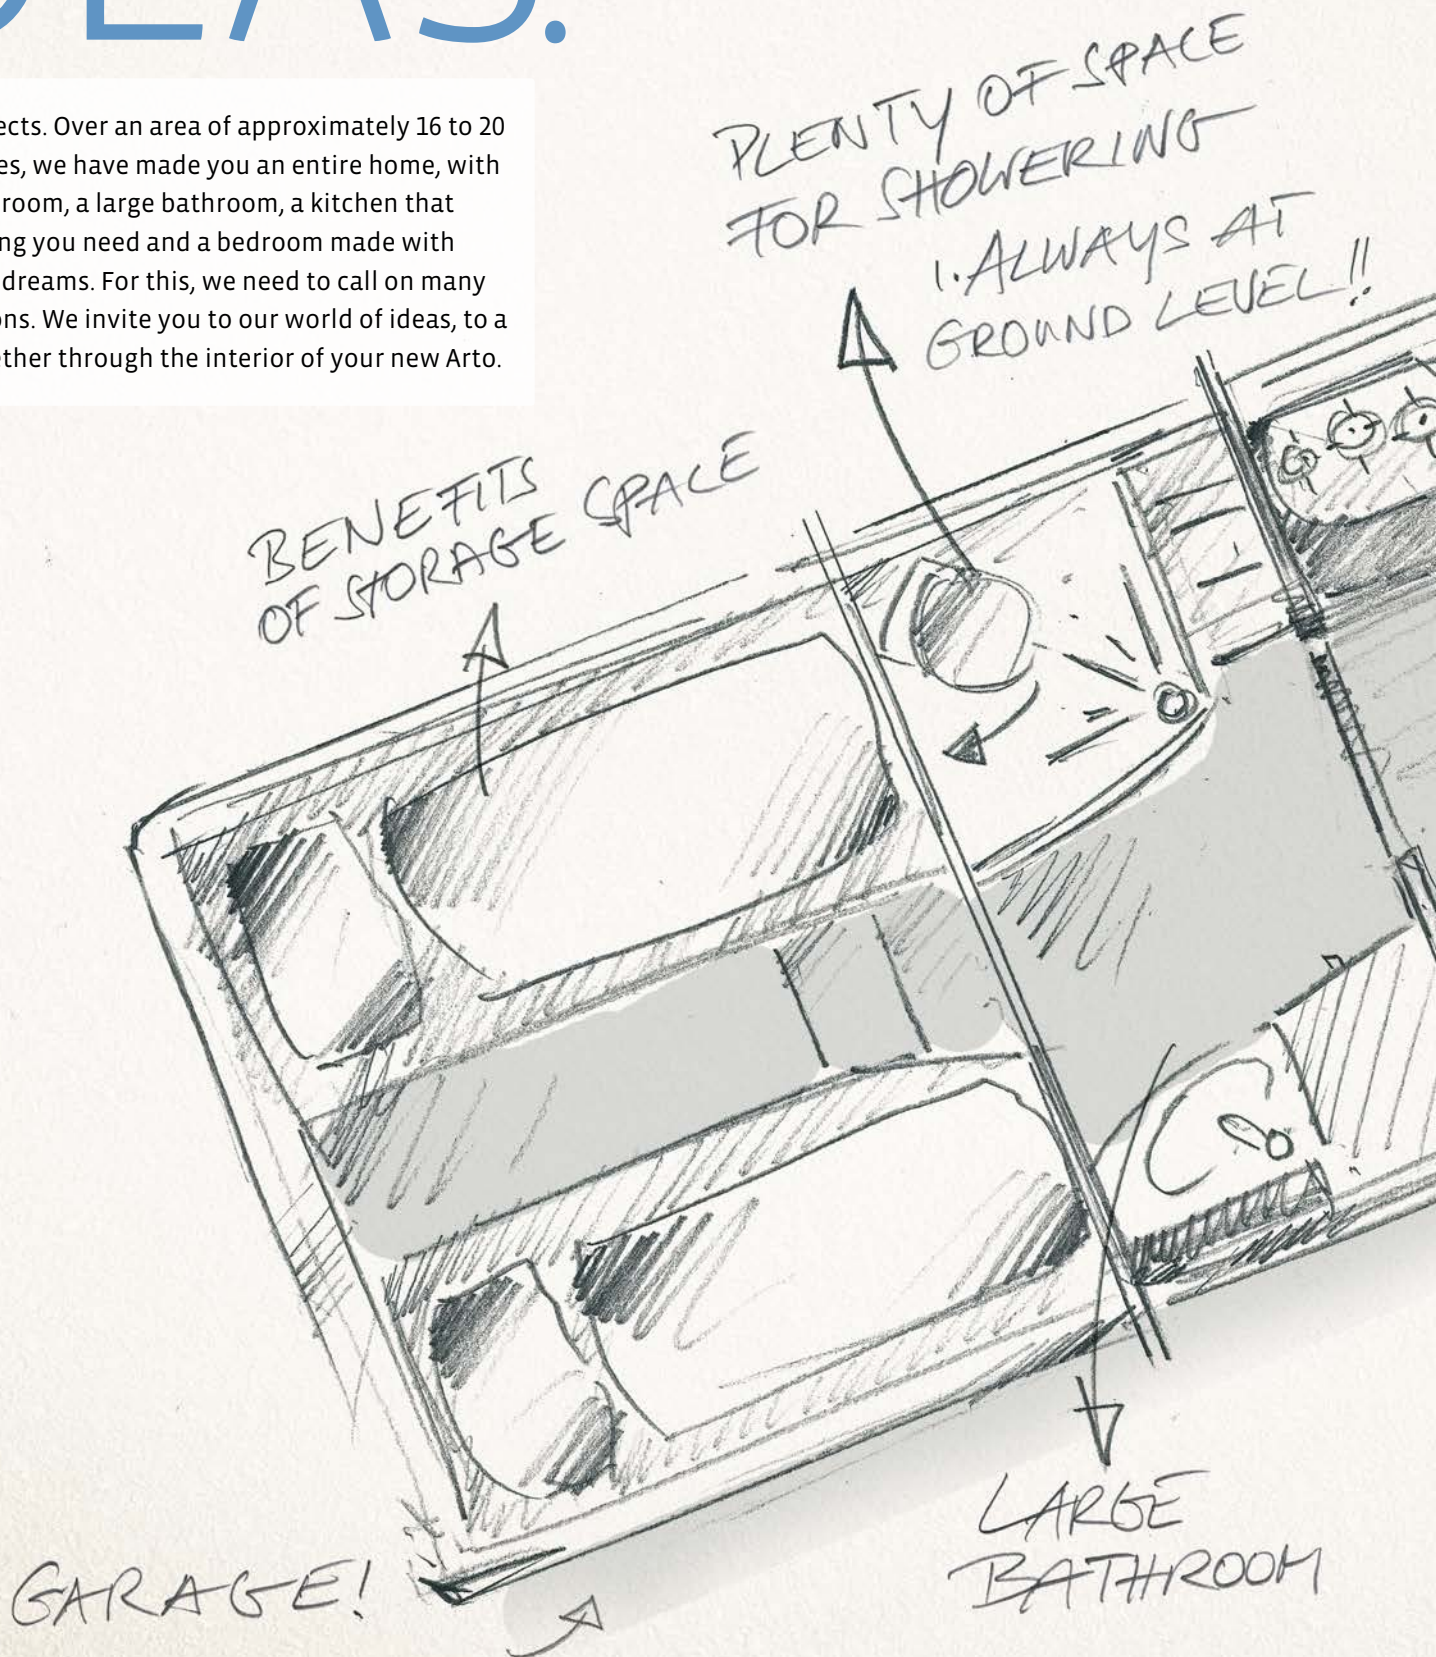 DEAS.
ects. Over an area of approximately 16 to 20
es, we have made you an entire home, with
room, a large bathroom, a kitchen that
ng you need and a bedroom made with
dreams. For this, we need to call on many
ons. We invite you to our world of ideas, to a
ether through the interior of your new Arto.
PLENTY OF SPACE
FOR SHOWERING
1. ALWAYS AT
GROUND LEVEL!!
BENEFITS
OF STORAGE SPACE
LARGE
BATHROOM
GARAGE!